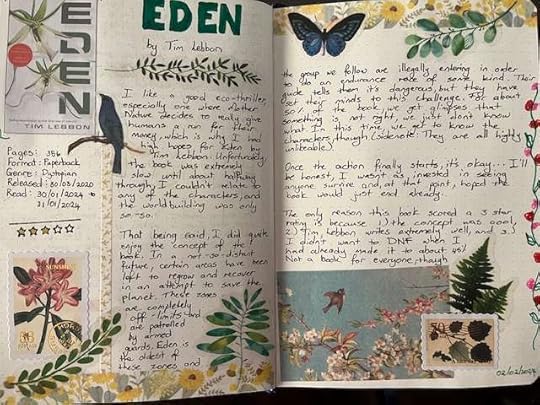 EDEN
TIM LEBBON
Pages: 356
Format: Paperback
Genre: Dystopian
Released: 30/03/2020
Read: 30/01/2024 to
31/01/2024
EDEN
by Tim Lebbon
I like a good eco-thriller
especially one where Mother
Nature decides to really give
humans a run for their
money, which is why I had
high hopes for Eden by
Tim Lebbon. Unfortunately
the book was extremely
slow until about halfway
through, I couldn't relate to
any of the characters, and
the worldbuilding was only
so-so.
That being said, I did quite
enjoy the concept of the
book. In a not-so-distant
future, certain areas have been
left to regrow and recover
in an attempt to save the
planet. These zones
are completely
off-limits and
are patrolled
by armed
guards. Eden is
the oldest of
these zones and
the group we follow are illegally entering in order
to do an endurance race of some kind. Their
guide tells them it's dangerous, but they have
set their minds to this challenge. For about
50% of the book, we get glimpses that
something is not right, we just don't know
what. In this time, we get to know the
characters though (sidenote: They are all highly
unlikeable).
Once the action finally starts, it's okay... I'll
be honest, I wasn't as invested in seeing
anyone survive and, at that point, hoped the
book would just end already.
The only reason this book scored a 3 star
rating is because 1) the concept was cool,
2) Tim Lebbon writes extremely well, and 3)
I didn't want to DNF when I
had already made it to about 45%
Not a book for everyone, though
02/02/2024